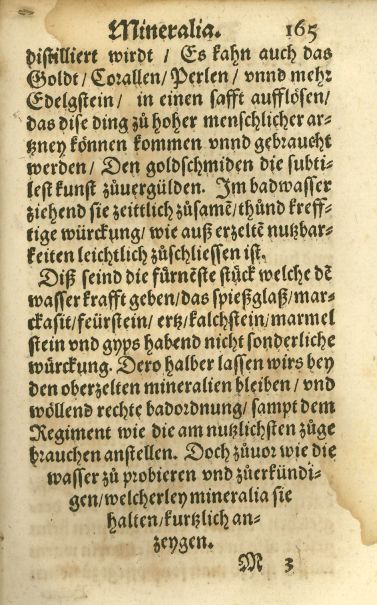 Mineralia. 165
distilliert wirdt / Es kahn auch das
Goldt / Corallen / Perlen / vnnd mehr
Edelgstein / in einen safft aufflösen /
das dise ding zů hoher menschlicher ar⸗
tzney können kommen vnnd gebraucht
werden / Den goldschmiden die subti⸗
lest kunst zůuergülden. Im badwasser
ziehend sie zeittlich zůsamē / thůnd kreff⸗
tige würckung / wie auß erzeltē nutzbar⸗
keiten leichtlich zůschliessen ist.
Diß seind die fürnēste stück welche dē
wasser krafft geben / das spießglaß / mar⸗
ckasit / feürstein / ertz / kalchstein / marmel
stein vnd gyps habend nicht sonderliche
würckung. Dero halber lassen wirs bey
den oberzelten mineralien bleiben / vnd
wöllend rechte badordnung / sampt dem
Regiment wie die am nutzlichsten züge
brauchen anstellen. Doch zůuor wie die
wasser zů probieren vnd zůerkündi⸗
gen / welcherley mineralia sie
halten / kurtzlich an⸗
zeygen.
M 3